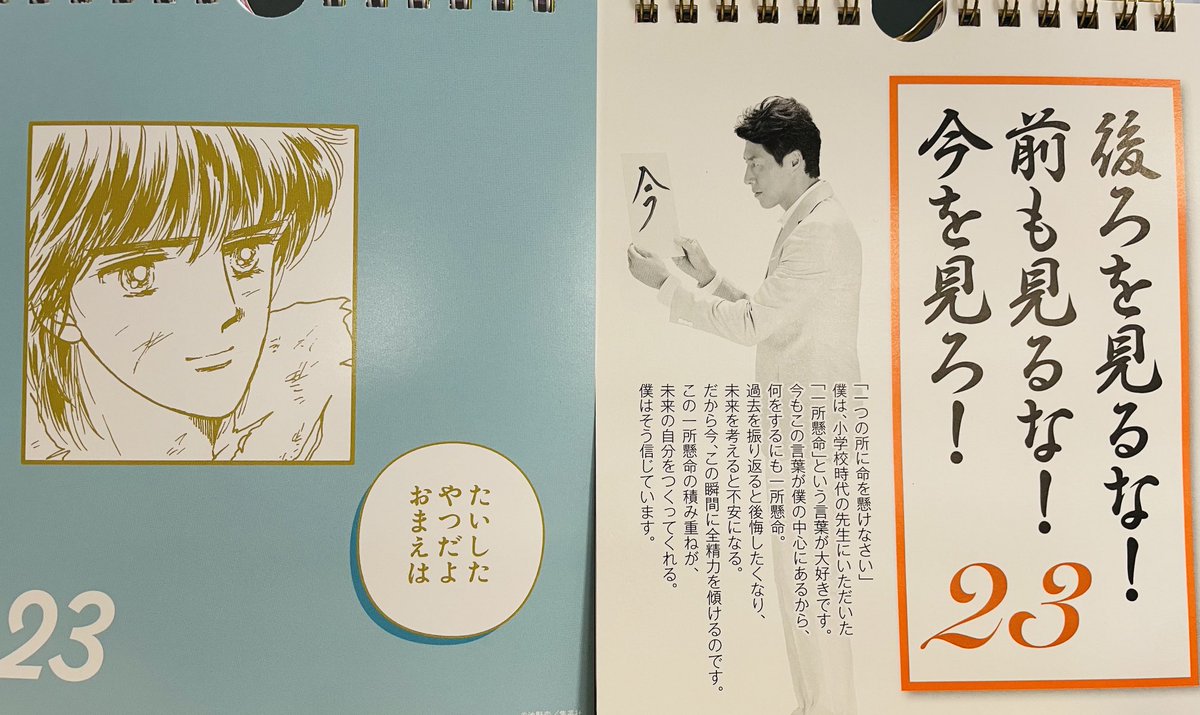 たいした
やつだよ
おまえは
23
後ろを見るな!
前も見るな!
今を見ろ!
23
今
「一つの所に命を懸けなさい」
僕は、小学校時代の先生にいただいた
「一所懸命」という言葉が大好きです。
今もこの言葉が僕の中心にあるから、
何をするにも一所懸命。
過去を振り返ると後悔したくなり、
未来を考えると不安になる。
だから今、この瞬間に全精力を傾けるのです。
この一所懸命の積み重ねが、
未来の自分をつくってくれる。
僕はそう信じています。